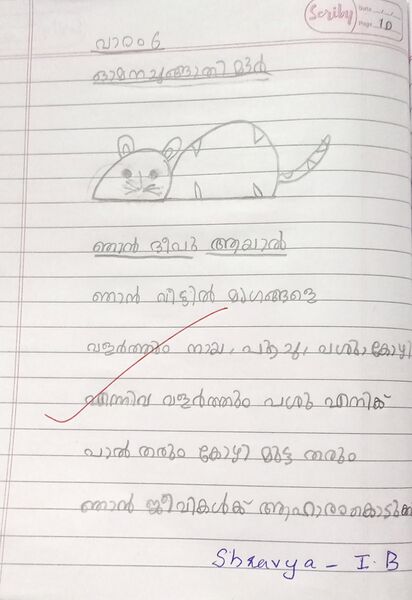 Scriby
Date
Page 10
പാഠം 6
ഓമനചങ്ങാതിമാർ
ഞാൻ ദീപു ആയാൽ
ഞാൻ വീട്ടിൽ മൃഗങ്ങളെ
വളർത്തും നായ, പൂച്ച, പശു, കോഴി
എന്നിവ വളർത്തും പശു എനിക്ക്
പാൽ തരും കോഴി മുട്ട തരും
ഞാൻ ജീവികൾക്ക് ആഹാരം
Shravya - I. B